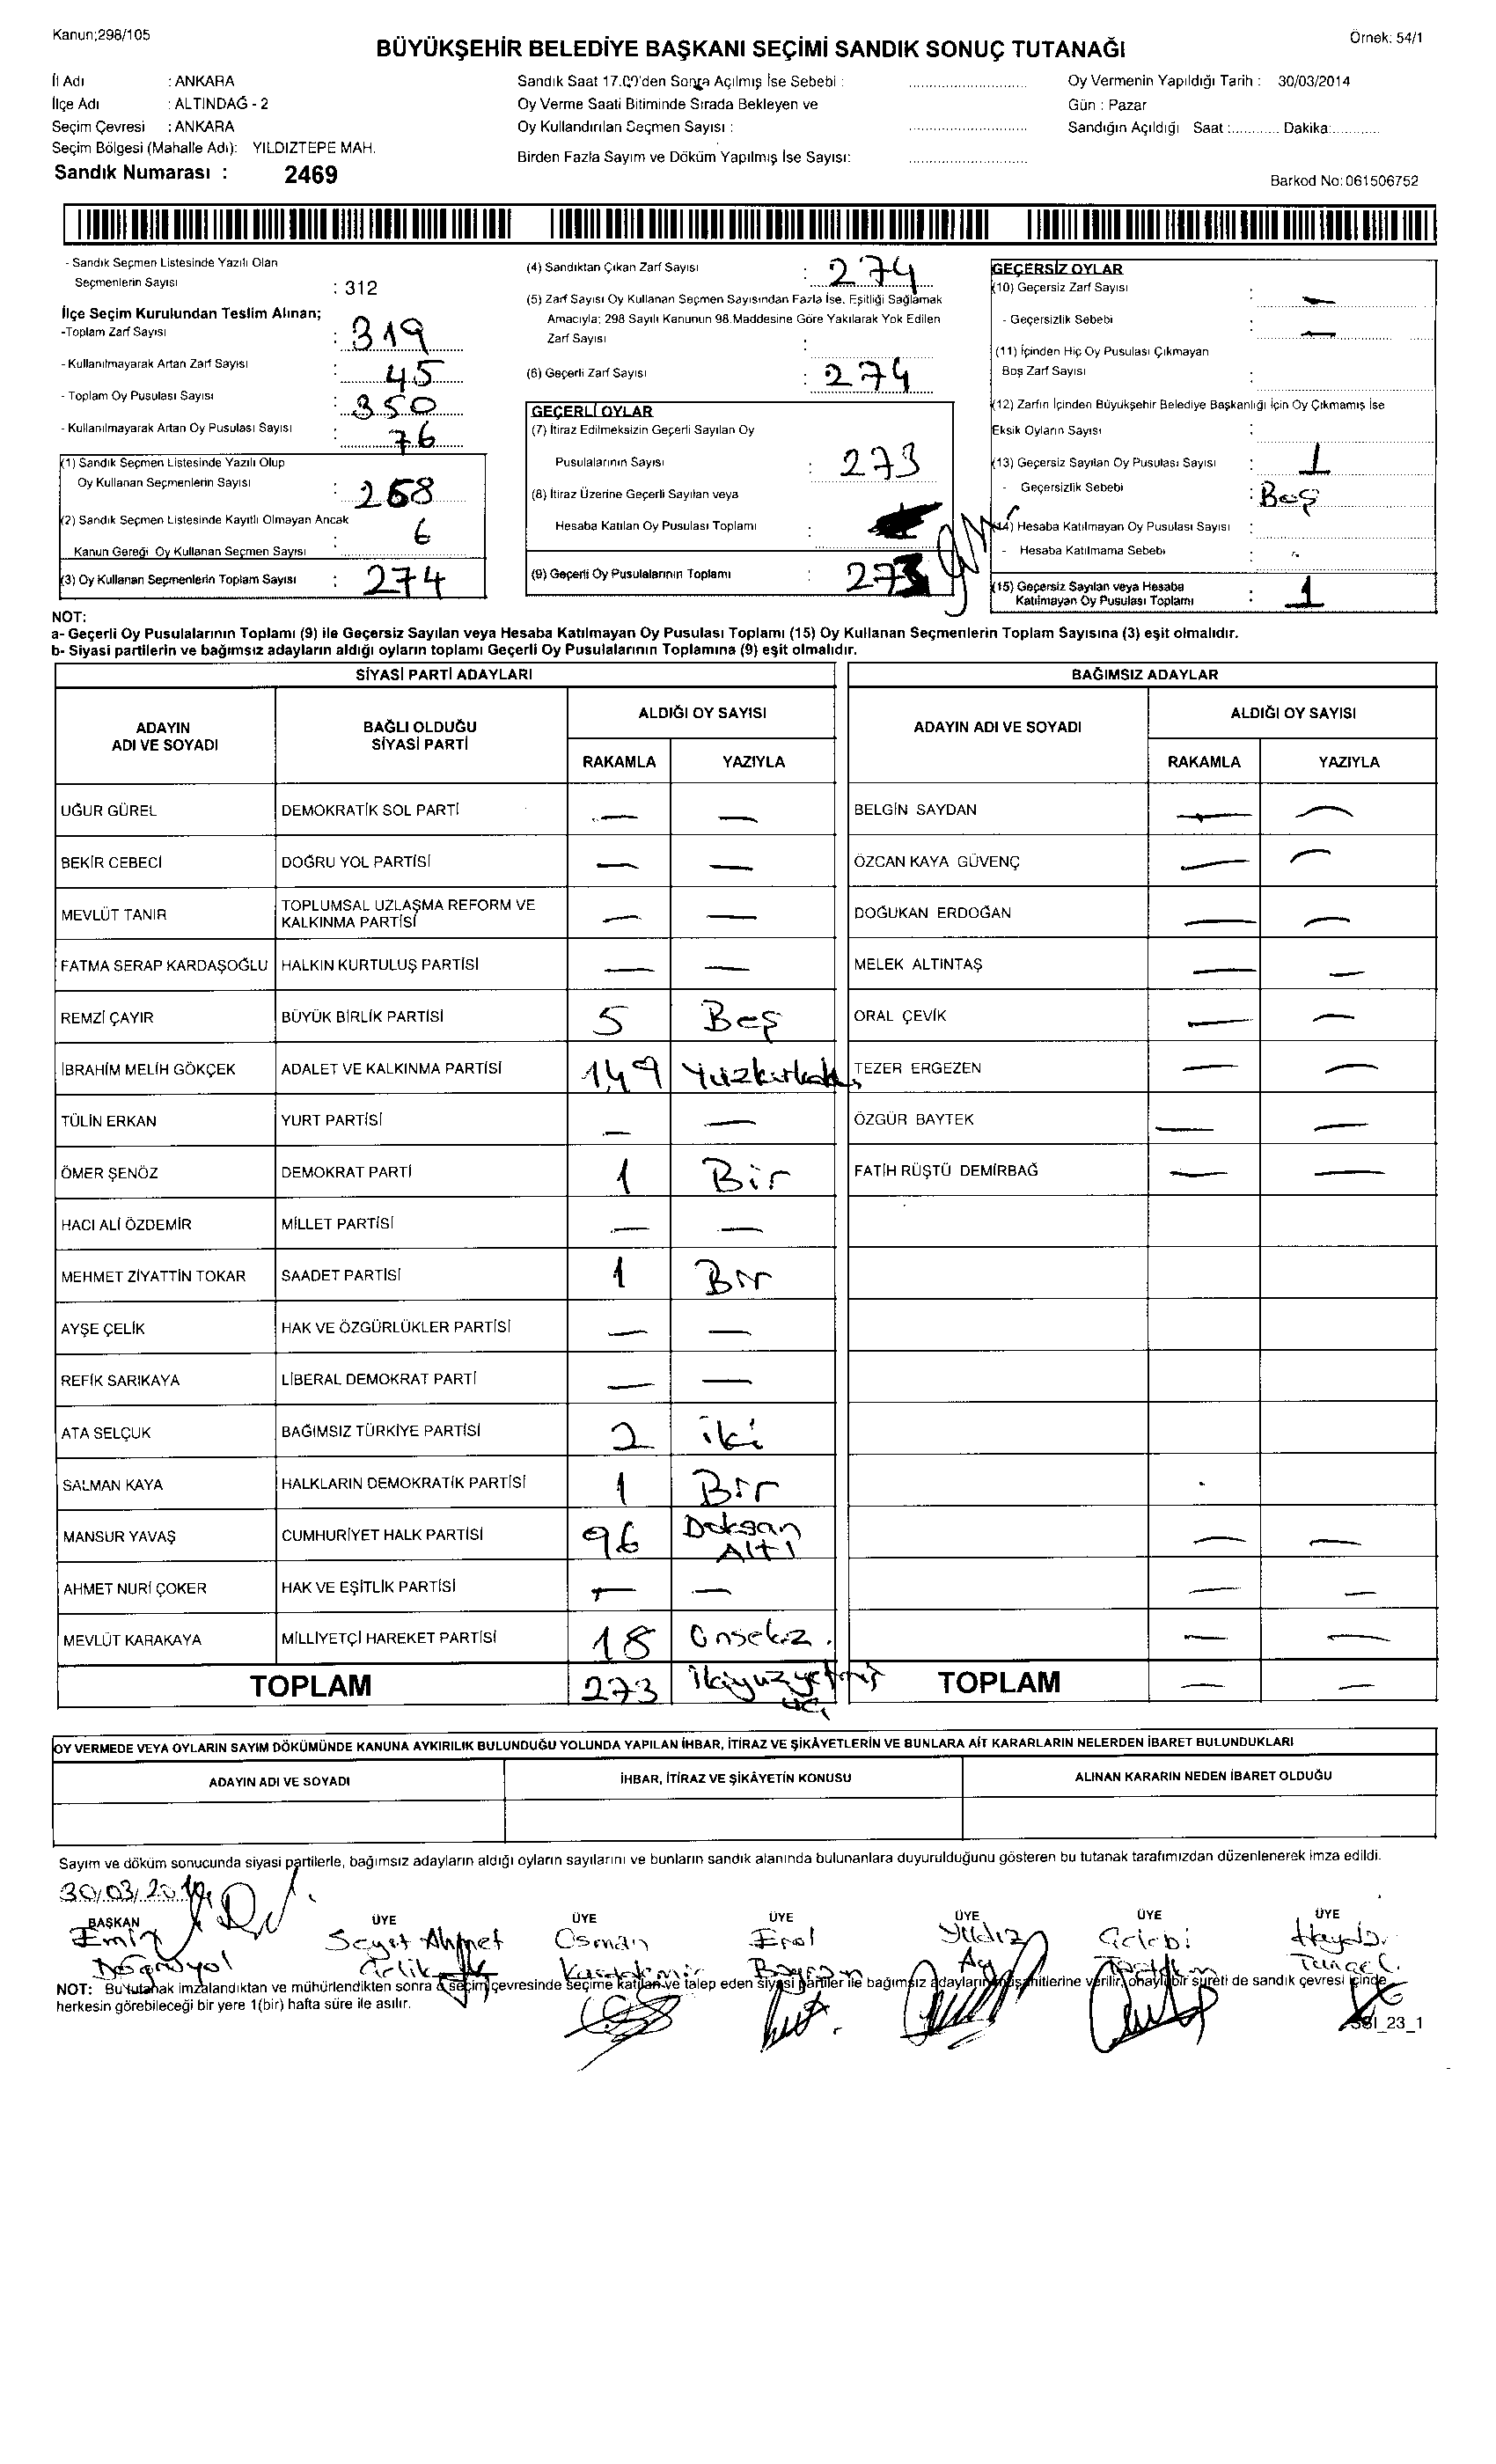 Kanun;298/105
Örnek: 54/1
BÜYÜKŞEHİR BELEDİYE BAŞKANI SEÇİMİ SANDIK SONUÇ TUTANAĞI
İl Adı : ANKARA
İlçe Adı : ALTINDAĞ - 2
Seçim Çevresi : ANKARA
Seçim Bölgesi (Mahalle Adı): YILDIZTEPE MAH.
Sandık Numarası : 2469
Sandık Saat 17.00'den Sonra Açılmış İse Sebebi :
Oy Verme Saati Bitiminde Sırada Bekleyen ve
Oy Kullandırılan Seçmen Sayısı :
Birden Fazla Sayım ve Döküm Yapılmış İse Sayısı:
Oy Vermenin Yapıldığı Tarih : 30/03/2014
Gün : Pazar
Sandığın Açıldığı Saat :............ Dakika:............
Barkod No: 061506752
- Sandık Seçmen Listesinde Yazılı Olan
Seçmenlerin Sayısı : 312
İlçe Seçim Kurulundan Teslim Alınan;
-Toplam Zarf Sayısı : 319
- Kullanılmayarak Artan Zarf Sayısı : 45
- Toplam Oy Pusulası Sayısı : 350
- Kullanılmayarak Artan Oy Pusulası Sayısı : 76
(1) Sandık Seçmen Listesinde Yazılı Olup
Oy Kullanan Seçmenlerin Sayısı : 268
(2) Sandık Seçmen Listesinde Kayıtlı Olmayan Ancak
Kanun Gereği Oy Kullanan Seçmen Sayısı : 6
(3) Oy Kullanan Seçmenlerin Toplam Sayısı : 274
(4) Sandıktan Çıkan Zarf Sayısı : 274
(5) Zarf Sayısı Oy Kullanan Seçmen Sayısından Fazla İse, Eşitliği Sağlamak
Amacıyla; 298 Sayılı Kanunun 98.Maddesine Göre Yakılarak Yok Edilen
Zarf Sayısı :
(6) Geçerli Zarf Sayısı : 274
GEÇERLİ OYLAR
(7) İtiraz Edilmeksizin Geçerli Sayılan Oy
Pusulalarının Sayısı : 273
(8) İtiraz Üzerine Geçerli Sayılan veya
Hesaba Katılan Oy Pusulası Toplamı :
(9) Geçerli Oy Pusulalarının Toplamı : 273
GEÇERSİZ OYLAR
(10) Geçersiz Zarf Sayısı : —
- Geçersizlik Sebebi : —
(11) İçinden Hiç Oy Pusulası Çıkmayan
Boş Zarf Sayısı :
(12) Zarfın İçinden Büyükşehir Belediye Başkanlığı İçin Oy Çıkmamış İse
Eksik Oyların Sayısı :
(13) Geçersiz Sayılan Oy Pusulası Sayısı : 1
- Geçersizlik Sebebi : Boş
(14) Hesaba Katılmayan Oy Pusulası Sayısı :
- Hesaba Katılmama Sebebi :
(15) Geçersiz Sayılan veya Hesaba
Katılmayan Oy Pusulası Toplamı : 1
NOT:
a- Geçerli Oy Pusulalarının Toplamı (9) ile Geçersiz Sayılan veya Hesaba Katılmayan Oy Pusulası Toplamı (15) Oy Kullanan Seçmenlerin Toplam Sayısına (3) eşit olmalıdır.
b- Siyasi partilerin ve bağımsız adayların aldığı oyların toplamı Geçerli Oy Pusulalarının Toplamına (9) eşit olmalıdır.
SİYASİ PARTİ ADAYLARI
ADAYIN ADI VE SOYADI BAĞLI OLDUĞU SİYASİ PARTİ ALDIĞI OY SAYISI
RAKAMLA YAZIYLA
UĞUR GÜREL DEMOKRATİK SOL PARTİ — —
BEKİR CEBECİ DOĞRU YOL PARTİSİ — —
MEVLÜT TANIR TOPLUMSAL UZLAŞMA REFORM VE KALKINMA PARTİSİ — —
FATMA SERAP KARDAŞOĞLU HALKIN KURTULUŞ PARTİSİ — —
REMZİ ÇAYIR BÜYÜK BİRLİK PARTİSİ 5 Beş
İBRAHİM MELİH GÖKÇEK ADALET VE KALKINMA PARTİSİ 149
TÜLİN ERKAN YURT PARTİSİ — —
ÖMER ŞENÖZ DEMOKRAT PARTİ 1 Bir
HACI ALİ ÖZDEMİR MİLLET PARTİSİ — —
MEHMET ZİYATTİN TOKAR SAADET PARTİSİ 1 Bir
AYŞE ÇELİK HAK VE ÖZGÜRLÜKLER PARTİSİ — —
REFİK SARIKAYA LİBERAL DEMOKRAT PARTİ — —
ATA SELÇUK BAĞIMSIZ TÜRKİYE PARTİSİ 2 iki
SALMAN KAYA HALKLARIN DEMOKRATİK PARTİSİ 1 Bir
MANSUR YAVAŞ CUMHURİYET HALK PARTİSİ 96 Doksan Altı
AHMET NURİ ÇOKER HAK VE EŞİTLİK PARTİSİ — —
MEVLÜT KARAKAYA MİLLİYETÇİ HAREKET PARTİSİ 18 Onsekiz
TOPLAM 273
BAĞIMSIZ ADAYLAR
ADAYIN ADI VE SOYADI ALDIĞI OY SAYISI
RAKAMLA YAZIYLA
BELGİN SAYDAN — —
ÖZCAN KAYA GÜVENÇ — —
DOĞUKAN ERDOĞAN — —
MELEK ALTINTAŞ — —
ORAL ÇEVİK — —
TEZER ERGEZEN — —
ÖZGÜR BAYTEK — —
FATİH RÜŞTÜ DEMİRBAĞ — —
TOPLAM — —
OY VERMEDE VEYA OYLARIN SAYIM DÖKÜMÜNDE KANUNA AYKIRILIK BULUNDUĞU YOLUNDA YAPILAN İHBAR, İTİRAZ VE ŞİKÂYETLERİN VE BUNLARA AİT KARARLARIN NELERDEN İBARET BULUNDUKLARI
ADAYIN ADI VE SOYADI İHBAR, İTİRAZ VE ŞİKÂYETİN KONUSU ALINAN KARARIN NEDEN İBARET OLDUĞU
Sayım ve döküm sonucunda siyasi partilerle, bağımsız adayların aldığı oyların sayılarını ve bunların sandık alanında bulunanlara duyurulduğunu gösteren bu tutanak tarafımızdan düzenlenerek imza edildi.
30/03/2014
BAŞKAN ÜYE ÜYE ÜYE ÜYE ÜYE ÜYE
Emin Seyit Ahmet Osman Erol Yıldız Çelebi Haydar
Doğruyol Çelik Ay Tuncel
NOT: Bu tutanak imzalandıktan ve mühürlendikten sonra o seçim çevresinde seçime katılan ve talep eden siyasi partiler ile bağımsız adayların müşahitlerine verilir, onaylı bir sureti de sandık çevresi içinde
herkesin görebileceği bir yere 1(bir) hafta süre ile asılır.
23_1